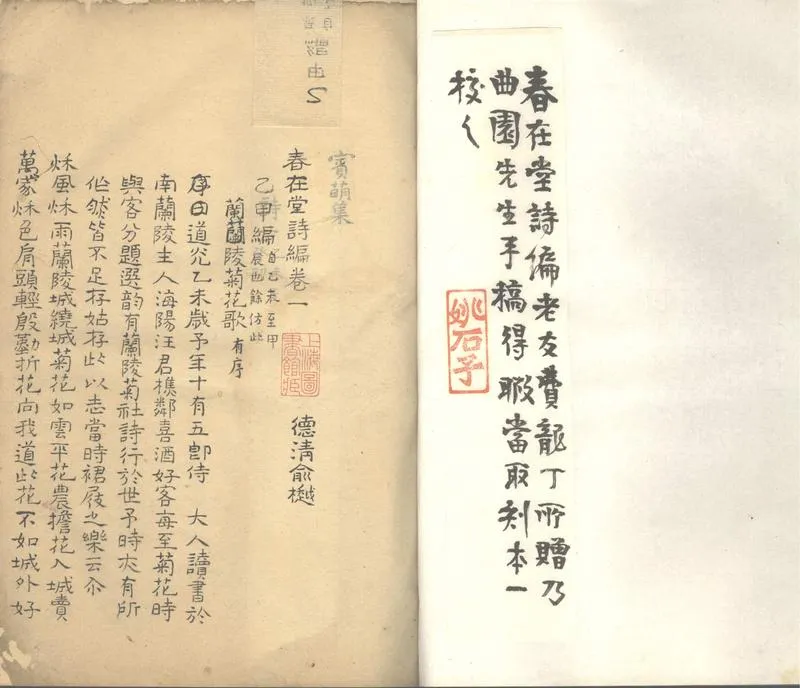 春在堂詩編老友費龍丁所贈乃
曲園先生手稿得暇當取刻本一
校之
姚石子
賓萌集
春在堂詩編卷一
德清俞樾
乙甲編
自乙未至甲
辰也餘仿此
蘭陵菊花歌 有序
序曰道光乙未歲予年十有五卽侍 大人讀書於
南蘭陵主人海陽汪君樵鄰喜酒好客每至菊花時
與客分題選韵有蘭陵菊社詩行於世予時亦有所
作然皆不足存姑存此以志當時裙屐之樂云尒
秌風秌雨蘭陵城繞城菊花如雲平花農擔花入城賣
萬家秌色肩頭輕殷勤折花向我道此花不如城外好
上海圖
書館藏